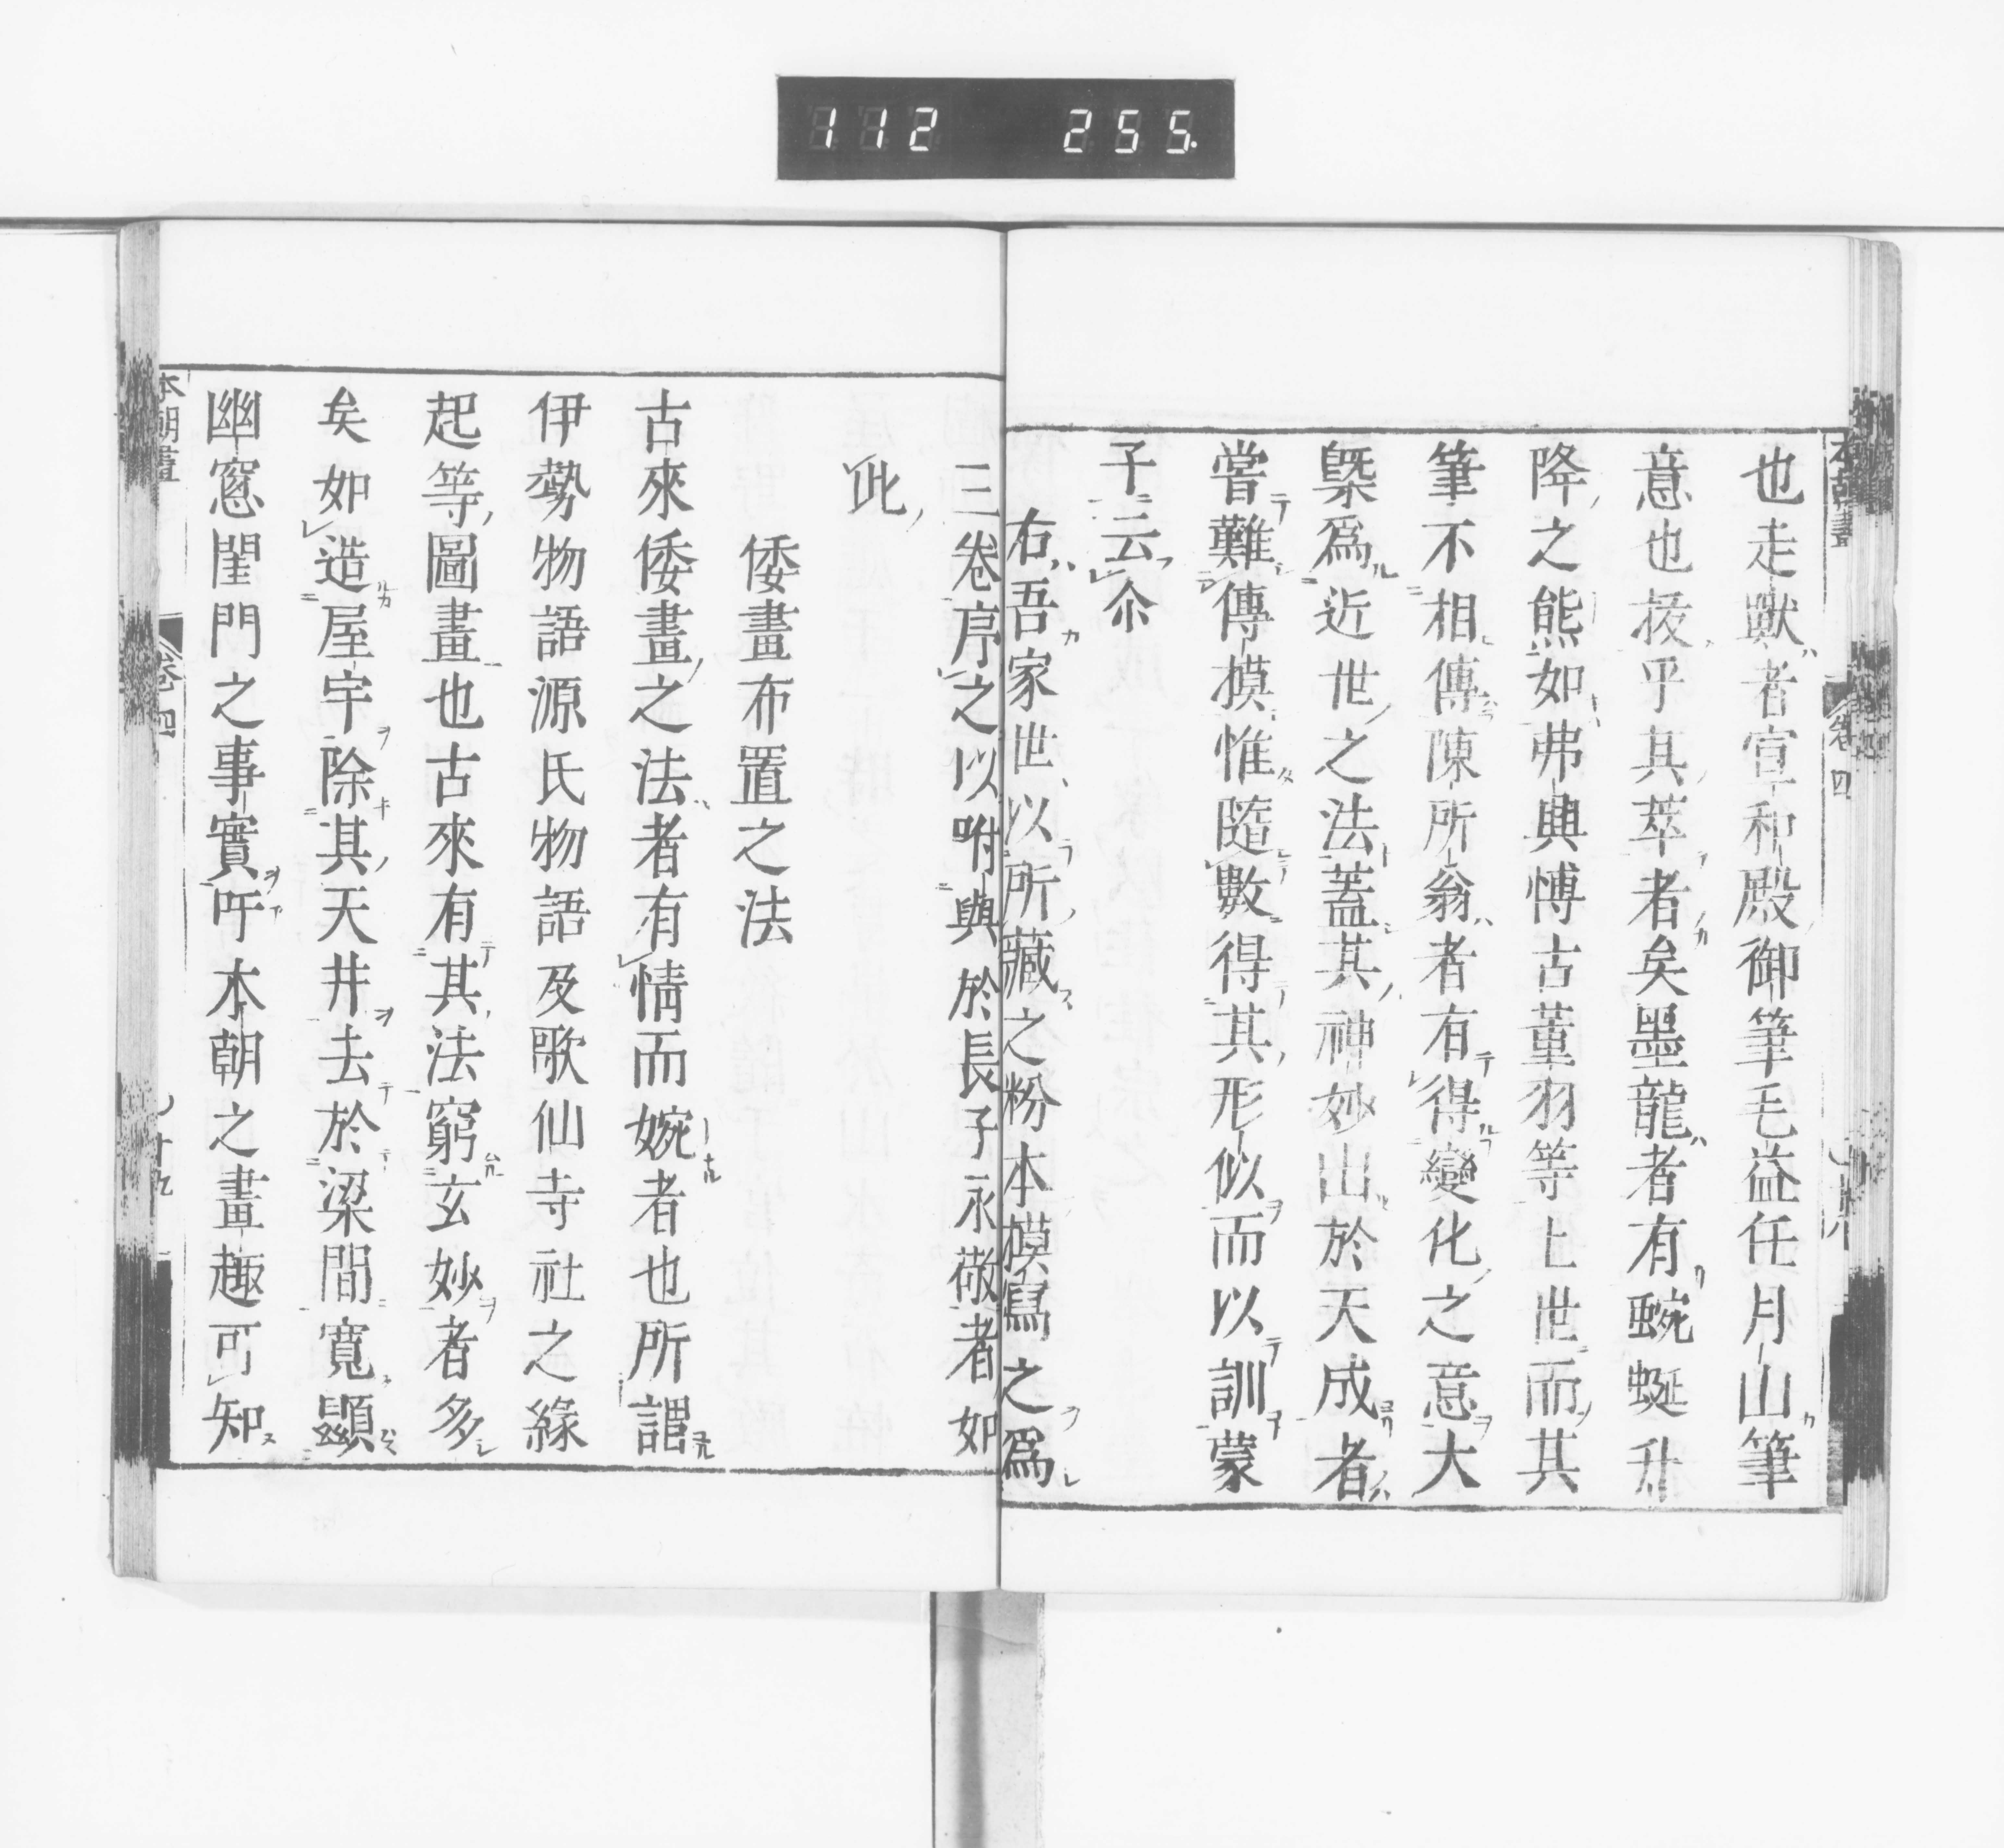 112 255
也走獸者宣和殿御筆毛益任月山筆
意也扱乎其萃者矣墨龍者有蜿蜒升
降之熊如弗興博古董羽等上世而其
筆不相傳陳所翁者有得變化之意大
槩爲近世之法蓋其神妙出於天成者
嘗難傳模惟隨數得其形似而以訓蒙
子云尒
右吾家世以所藏之粉本模寫之爲
三卷序之以咐與於長子永敬者如
此
倭畫布置之法
古來倭畫之法者有情而婉者也所謂
伊勢物語源氏物語及歌仙寺社之緣
起等圖畫也古來有其法窮玄妙者多
矣如造屋宇除其天井去於梁間寬顯
幽窓閨門之事實吁本朝之畫趣可知
本朝畫 卷四 十九